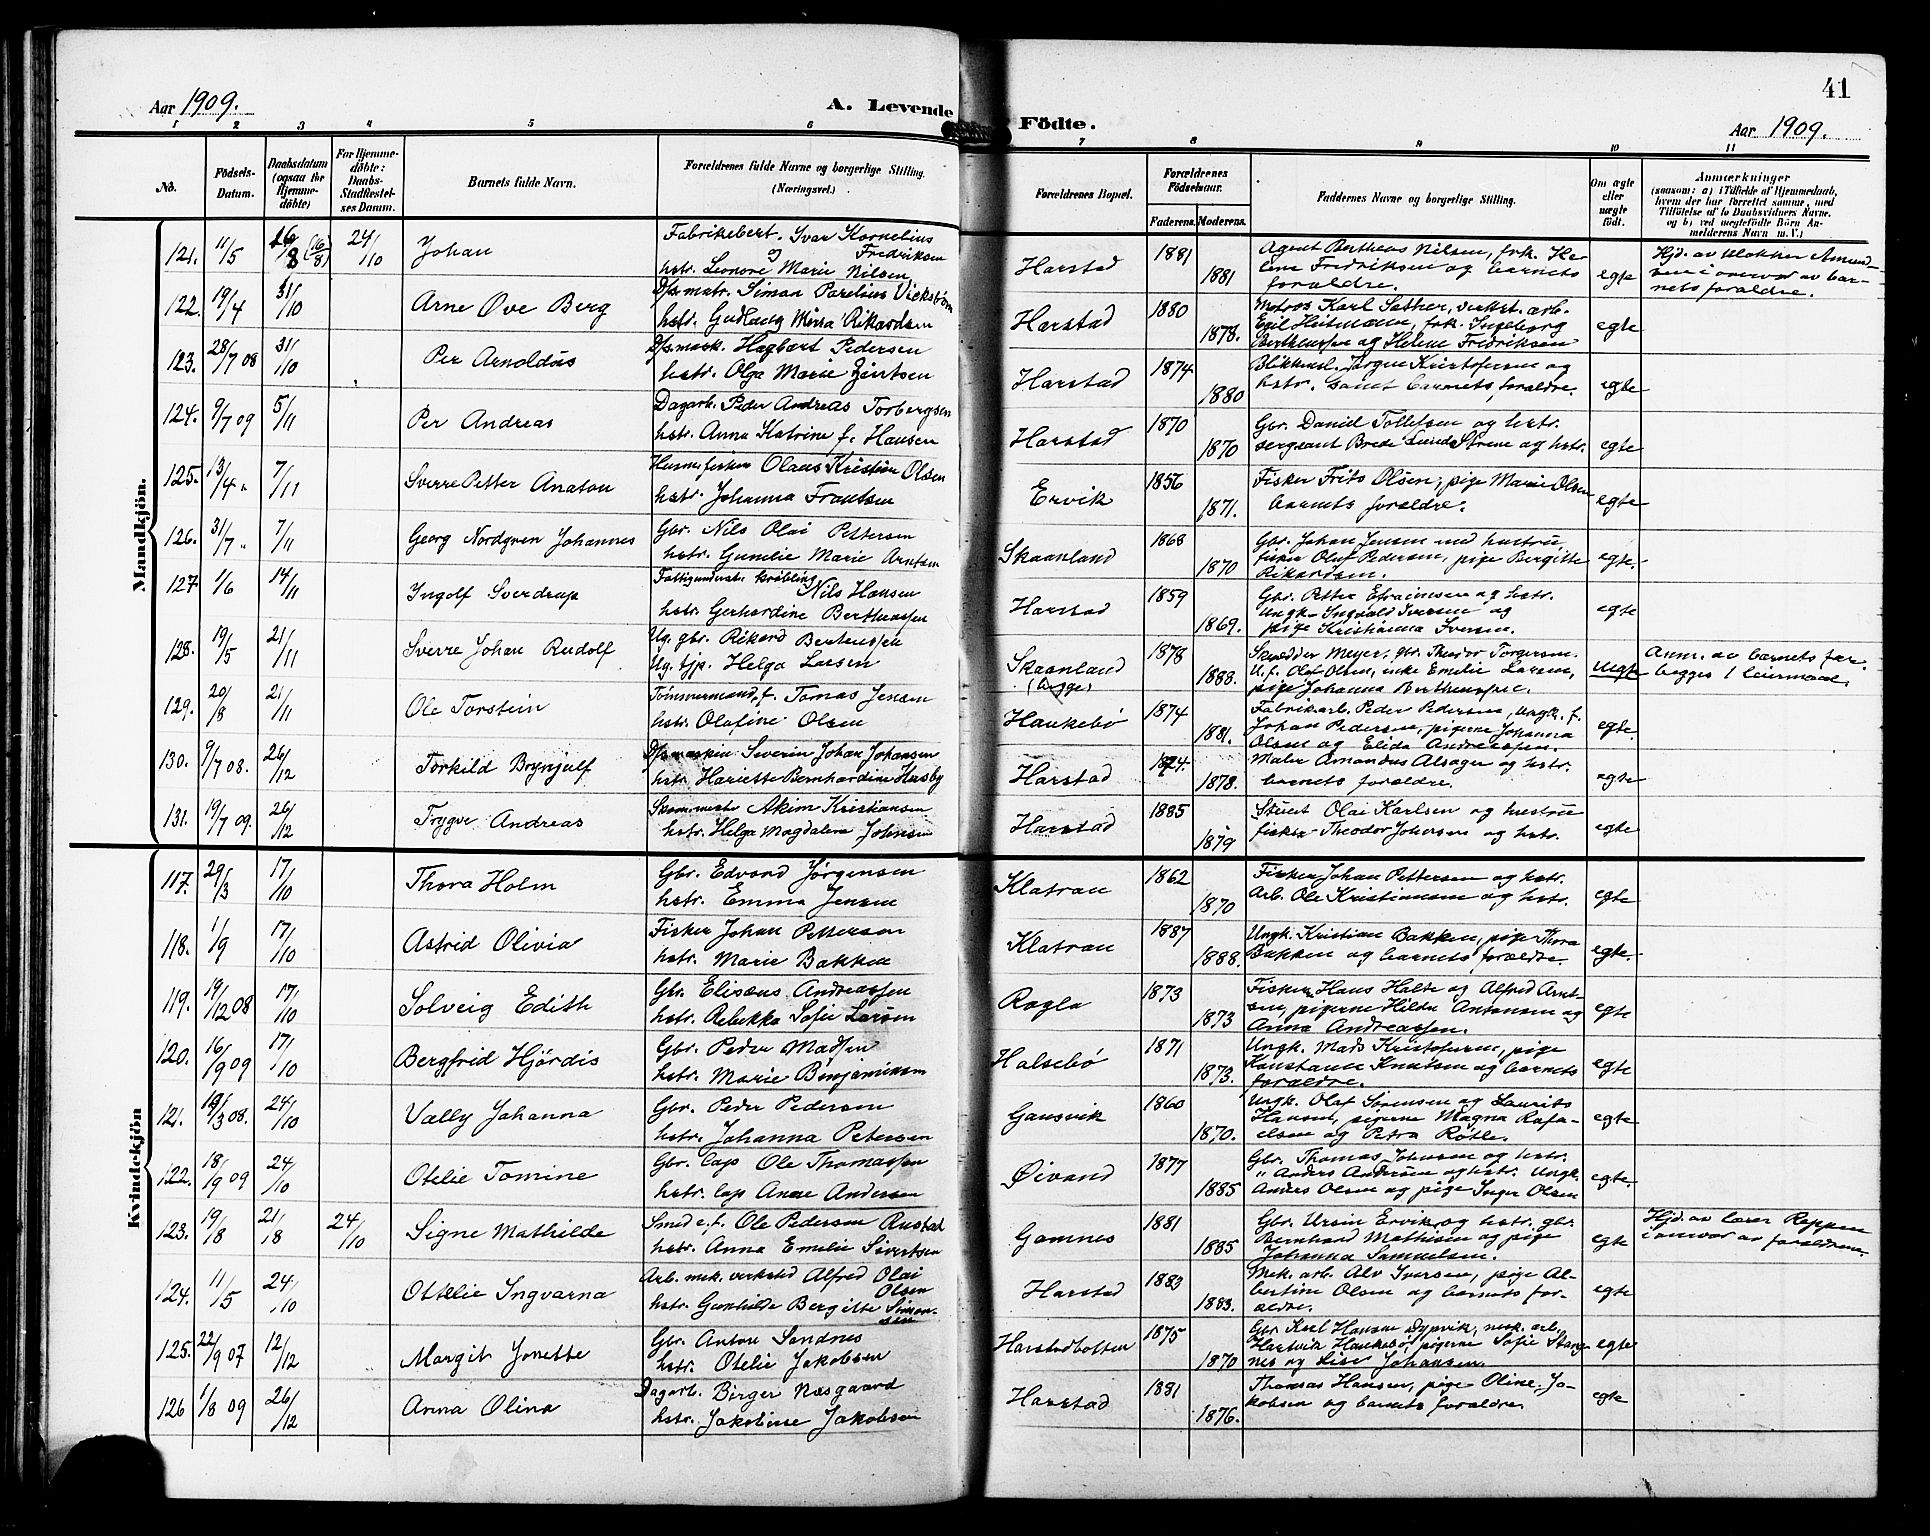 41
Aar 1909.
A. Levende Födte.
Aar 1909.
1 2 3 4 5 6 7 8 9 10 11
No. Födsels-Datum. Daabsdatum (ogsaa for Hjemmedöbte) For Hjemmedöbte: Daabs-Stadfæstelses Datum. Barnets fulde Navn. Forældrenes fulde Navne og borgerlige Stilling. (Næringsvei.) Forældrenes Bopæl. Forældrenes Födselsaar. Faderens. Moderens. Faddernes Navne og borgerlige Stilling. Om ægte eller uægte födt. Anmærkninger (saasom: a) i Tilfælde af Hjemmedaab, hvem der har forrettet samme, med Tilföielse af to Daabsvidners Navne, og b) ved uægtefödte Börn Anmelderens Navn m. V.)
Mandkjön.
121. 11/5 (16/8) 24/10 Johan Fabrikebert. Ivar Kornelius Fredriksen og hstr. Leonore Marie Nilsen Harstad 1881 1881 Agent Bertheus Nilsen, frk. Helene Fredriksen og barnets forældre. egte Hjd. av klokker i overvær av barnets forældre.
122. 19/4 31/10 Arne Ove Berg D/s matr. Simon Parelius Vickstrøm hstr. Gudlaug Minra Rikardsen Harstad 1880 1878. Matros Karl Sæther, verkst. arb. Egil Heitmann, frk. Ingeborg Berthenssen og Helene Fredriksen egte
123. 28/7 08 31/10 Per Arnoldus D/s mask. Hagbart Pedersen hstr. Olga Marie Harstad 1874 1880 Blikkensl. Jørgen Kristofersen og hstr. samt barnets forældre. egte
124. 9/7 09 5/11 Per Andreas Dagarb. Peder Andreas Torbergsen hstr. Anna Katrine f. Hansen Harstad 1870 1870 Gbr. Daniel Tollefsen og hstr. sergeant Brede Strøm og hstr. egte
125. 13/4 " 7/11 Sverre Petter Anaton Husm. fisker Olaus Kristian Olsen hstr. Johanna Frantsen Ervik 1856 1871. Fisker Frits Olsen, pige Marie Olsen barnets forældre. egte
126. 31/7 " 7/11 Georg Nordgven Johannes Gbr. Nils Olai Pettersen hstr. Gunelie Marie Arntsen Skaanland 1868 1870 Gbr. Johan Jensen med hustru fisker Oluf Pedersen, pige Bergitte Rikardsen. egte.
127 1/6 14/11 Ingolf Sverdrup Fattigunderst. krøbling Nils Hansen hstr. Gerhardine Berthenssen Harstad 1859 1869. Gbr. Petter Efraimsen og hstr. Ungk. Ingvald Iversen og pige Kristianna Iversen. egte
128. 19/5 21/11 Sverre Johan Rudolf Ug. gbr. Rikard Bertenssen Ug. tjp. Helga Larsen Skaanland (begge) 1878 1888. Skrædder Meyer, gbr. Theodor Torgersen. U. f. Olaf Olsen, enke Emelie Larsen, pige Johanna Berthenssen. uegte Anm. av barnets far. begges 1 leiermaal.
129. 20/8 21/11 Ole Torstein Tømmermand, f. Tomas Jensen hstr. Olafine Olsen Haukebø 1874 1881. Fabrikarb. Peder Pedersen, Ungk. f. Johan Pedersen, pigerne Johanna Olsen og Elida Andreassen. egte.
130. 9/7 08. 26/12 Torkild Brynjulf D/s maskin Severin Johan Johansen hstr. Hariette Bernhardine Husby Harstad 1874. 1878. Maler Amandus Alsager og hstr. barnets forældre. egte
131. 19/7 09. 26/12 Trygve Andreas Skom. mester Akim Kristiansen hstr. Helga Magdalena Johnsen Harstad 1885 1879 Stuert Olai Karlsen og hustru fisker Theodor Johnsen og hstr. egte
Kvindekjön
117. 29/3 17/10 Thora Holm Gbr. Edvard Jørgensen hstr. Emma Jensen Klatran 1862 1870 Fisker Johan Pettersen og hstr. Arb. Ole Kristiansen og hstr. egte
118. 1/9 17/10 Astrid Olivia Fisker Johan Petterson hstr. Marie Bakken Klatran 1887 1888. Ungk. Kristian Bakken, pige Thora Bakken og barnets forældre. egte.
119. 19/12 08 17/10 Solveig Edith Gbr. Elisæus Andreassen hstr. Rebekka Sofie Larsen Rogla 1873 1873 Fisker Hans Halse og Alfred Arntsen, pigerne Hilda Antonsen og Anna Andreassen. egte
120. 16/9 09 17/10 Bergfrid Hjördis Gbr. Peder Madsen hstr. Marie Benjaminsen Halsebø 1871 1873. Ungk. Mads Kristofersen, pige Konstanse Knutsen og barnets forældre. egte
121. 19/3 08. 24/10 Vally Johanna Gbr. Peder Pedersen hstr. Johanna Petersen Gausvik 1860 1870. Ungk. Olaf Sørensen og Laurits Hansen, pigerne Magna Rafaelsen og Petra Røtle. egte
122. 18/9 09 24/10 Otelie Tomine Gbr. lap Ole Thomassen hstr. lap Anne Andersen Øivand 1877 1885 Gbr. Thomas Johnsen og hstr. " Anders Andersen og hstr. Ungk. Anders Olsen og pige Inger Olsen egte.
123. 19/8 21/8 24/10 Signe Mathilde Smed e. f. Ole Pedersen Rustad hstr. Anna Emelie Sivertsen Gamnes 1881 1885 Gbr. Ursin Ervik og hstr. gbr. Bernhard Mathisen og pige Johanna Samuelsen. egte Hjd. av lærer Roppen i overvær av forældrene.
124. 11/5 24/10 Ottelie Ingvarna Arb. mek. verksted Alfred Olai Olsen hstr. Gunhilde Bergitte Simonsen Harstad 1883 1883. Mek. arb. Alv Iversen, pige Albertine Olsen og barnets forældre. egte
125. 22/9 07 12/12 Margit Jonette Gbr. Anton Sandnes hstr. Otelie Jakobsen Harstadbotten 1875 1870 Gbr. Karl Hansen Dypvik, mek. arb. Hartvik Haukebø, pigerne Sofie Stangnes og Lise Johansen. egte
126 1/8 09 26/12 Anna Olina Dagarb. Birger Næsgaard hstr. Jakobine Jakobsen Harstad 1881 1876. Thomas Hansen, pige Oline Jakobsen og barnets forældre. egte